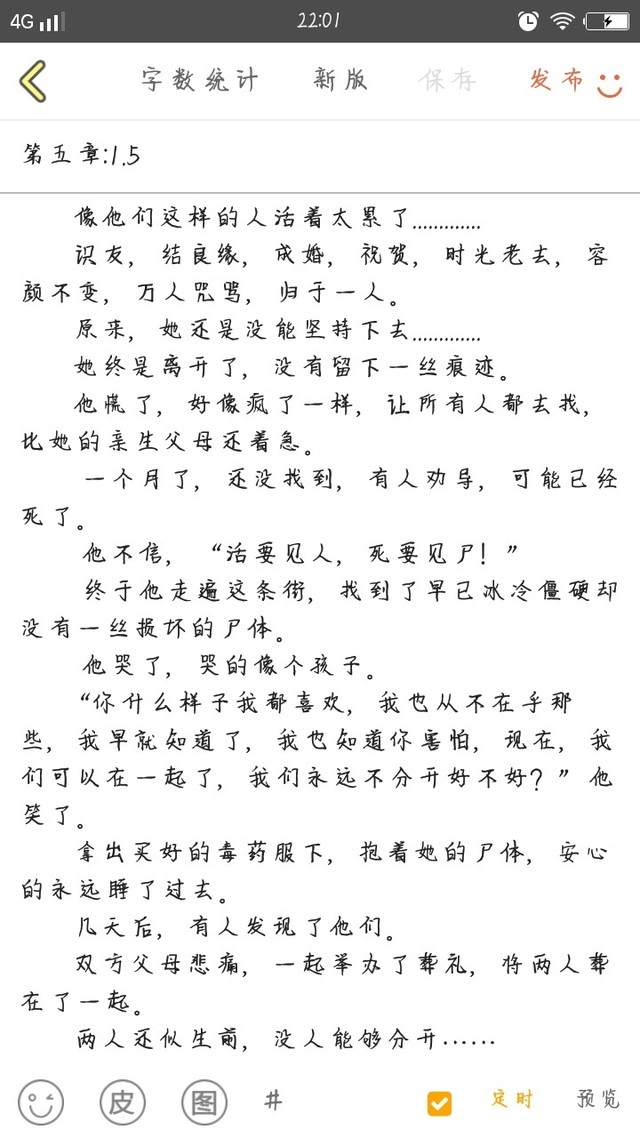 4G 22:01
字数统计 新版 保存 发布
第五章:1.5
像他们这样的人活着太累了.............
识友，结良缘，成婚，祝贺，时光老去，容
颜不变，万人咒骂，归于一人。
原来，她还是没能坚持下去.............
她终是离开了，没有留下一丝痕迹。
他慌了，好像疯了一样，让所有人都去找，
比她的亲生父母还着急。
一个月了，还没找到，有人劝导，可能已经
死了。
他不信，“活要见人，死要见尸！”
终于他走遍这条街，找到了早已冰冷僵硬却
没有一丝损坏的尸体。
他哭了，哭的像个孩子。
“你什么样子我都喜欢，我也从不在乎那
些，我早就知道了，我也知道你害怕，现在，我
们可以在一起了，我们永远不分开好不好？”他
笑了。
拿出买好的毒药服下，抱着她的尸体，安心
的永远睡了过去。
几天后，有人发现了他们。
双方父母悲痛，一起举办了葬礼，将两人葬
在了一起。
两人还似生前，没人能够分开······
皮 图 # 定时 预览